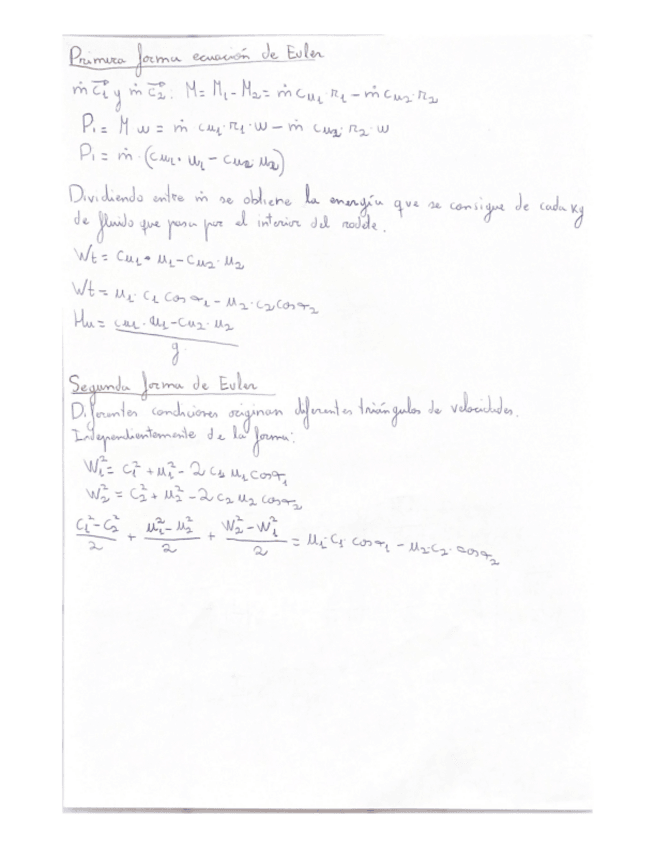 Primera forma ecuación de Euler
ṁ c⃗₁ y ṁ c⃗₂: M = M₁ - M₂ = ṁ cu₁·r₁ - ṁ cu₂·r₂
Pᵢ = M w = ṁ cu₁·r₁·w - ṁ cu₂·r₂·w
Pᵢ = ṁ·(cu₁·u₁ - cu₂·u₂)
Dividiendo entre ṁ se obtiene la energía que se consigue de cada kg
de fluido que pasa por el interior del rodete.
Wt = cu₁·u₁ - cu₂·u₂
Wt = u₁·c₁ cos α₁ - u₂·c₂ cos α₂
Hu = cu₁·u₁ - cu₂·u₂
g
Segunda forma de Euler
Diferentes condiciones originan diferentes triángulos de velocidades.
Independientemente de la forma:
W₁² = c₁² + u₁² - 2 c₁ u₁ cos α₁
W₂² = c₂² + u₂² - 2 c₂ u₂ cos α₂
(c₁² - c₂²)/2 + (u₁² - u₂²)/2 + (W₂² - W₁²)/2 = u₁·c₁ cos α₁ - u₂·c₂·cos α₂